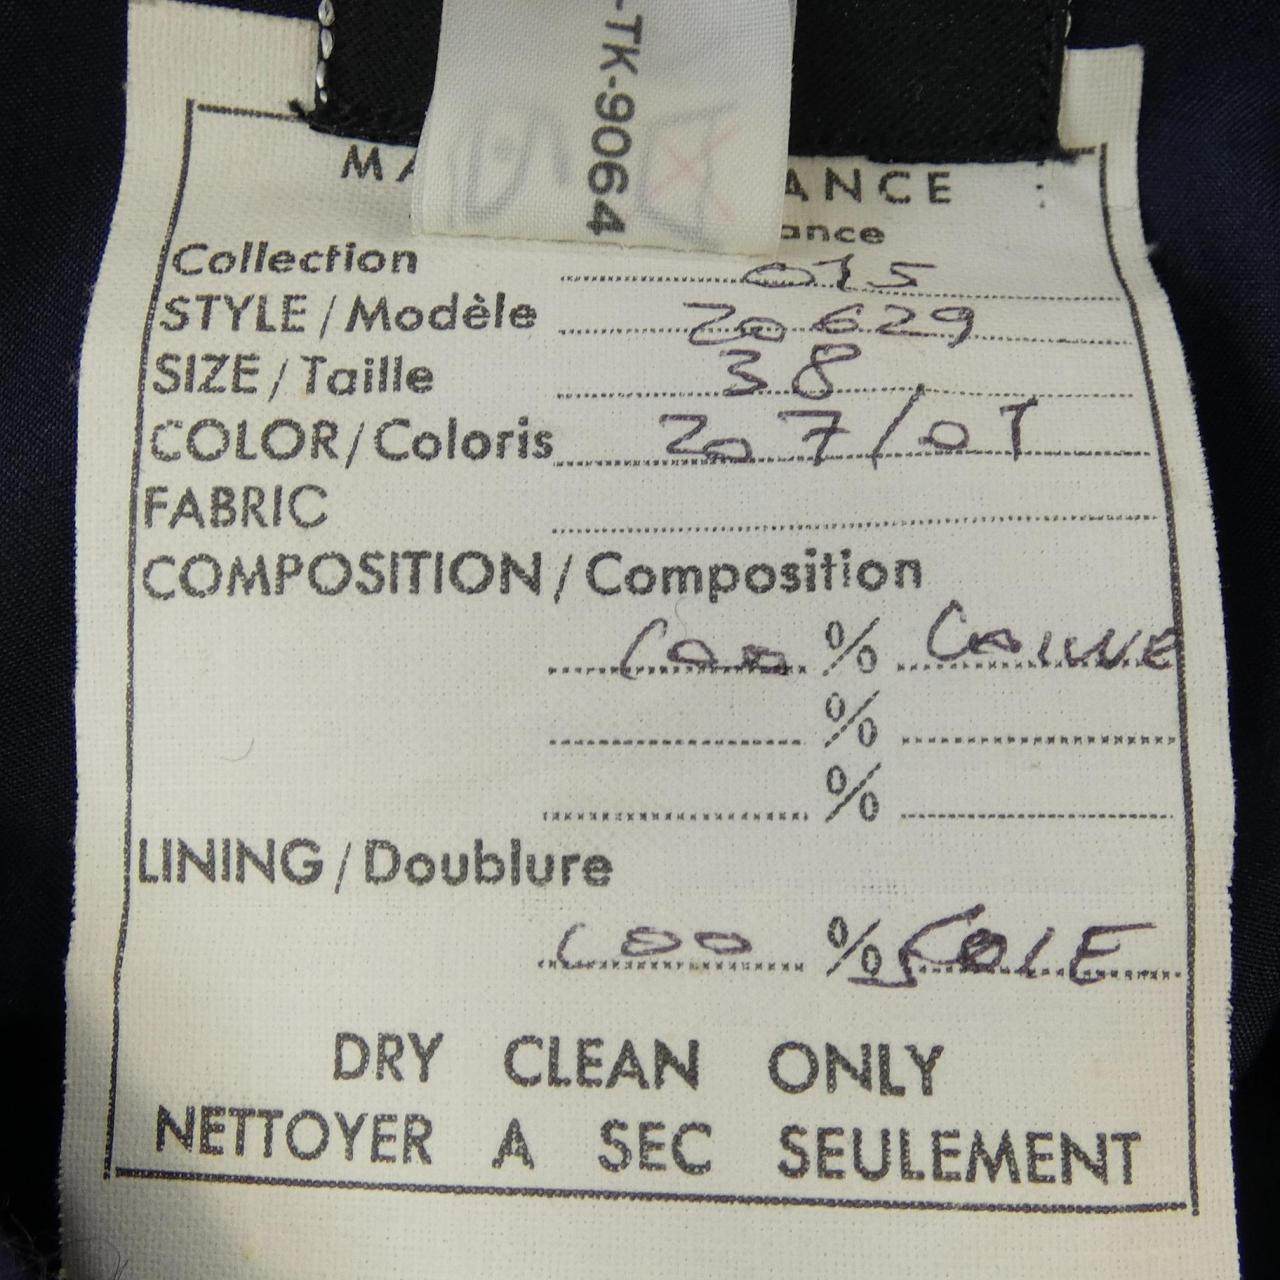 -TK-9064
MA ANCE
ance
Collection 015
STYLE / Modèle 20629
SIZE / Taille 38
COLOR / Coloris 207/01
FABRIC
COMPOSITION / Composition
100 % LAINE
%
%
LINING / Doublure
100 % SOIE
DRY CLEAN ONLY
NETTOYER A SEC SEULEMENT